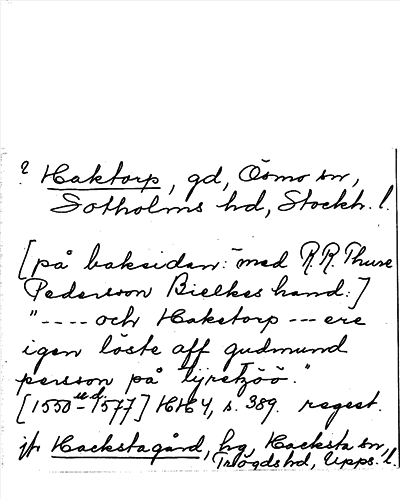 ? Haktorp, gd, Ösmo sn,
Sotholms hd, Stockh. l.
[på baksidan: med R.R. Thure
Pedersson Bielkes hand:]
"---- och Haketorp --- ere
igen löste aff gudmund
persson på Tyretzöö."
[1550-1577] HH 4, s. 389. regest.
jfr Hackstagård, hg, Hacksta sn,
Trögds hd, Upps. l.